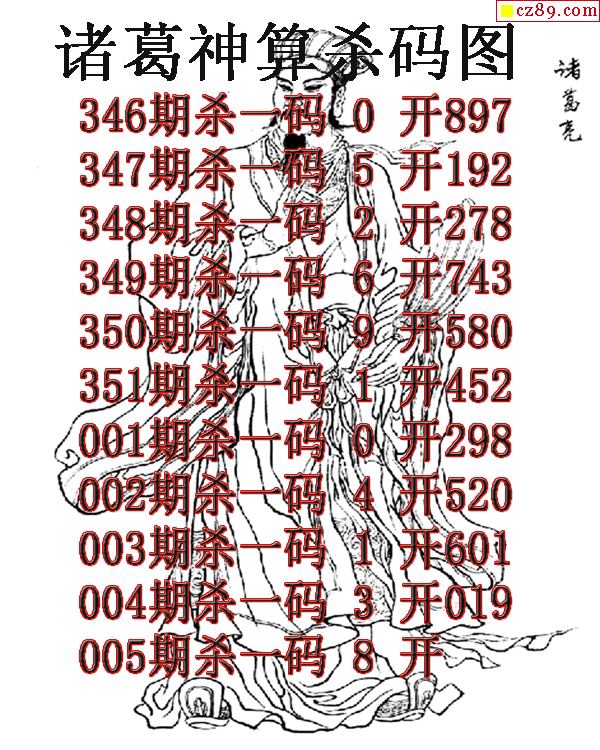 cz89.com
诸葛神算杀码图
诸葛亮
346期杀一码 0 开897
347期杀一码 5 开192
348期杀一码 2 开278
349期杀一码 6 开743
350期杀一码 9 开580
351期杀一码 1 开452
001期杀一码 0 开298
002期杀一码 4 开520
003期杀一码 1 开601
004期杀一码 3 开019
005期杀一码 8 开